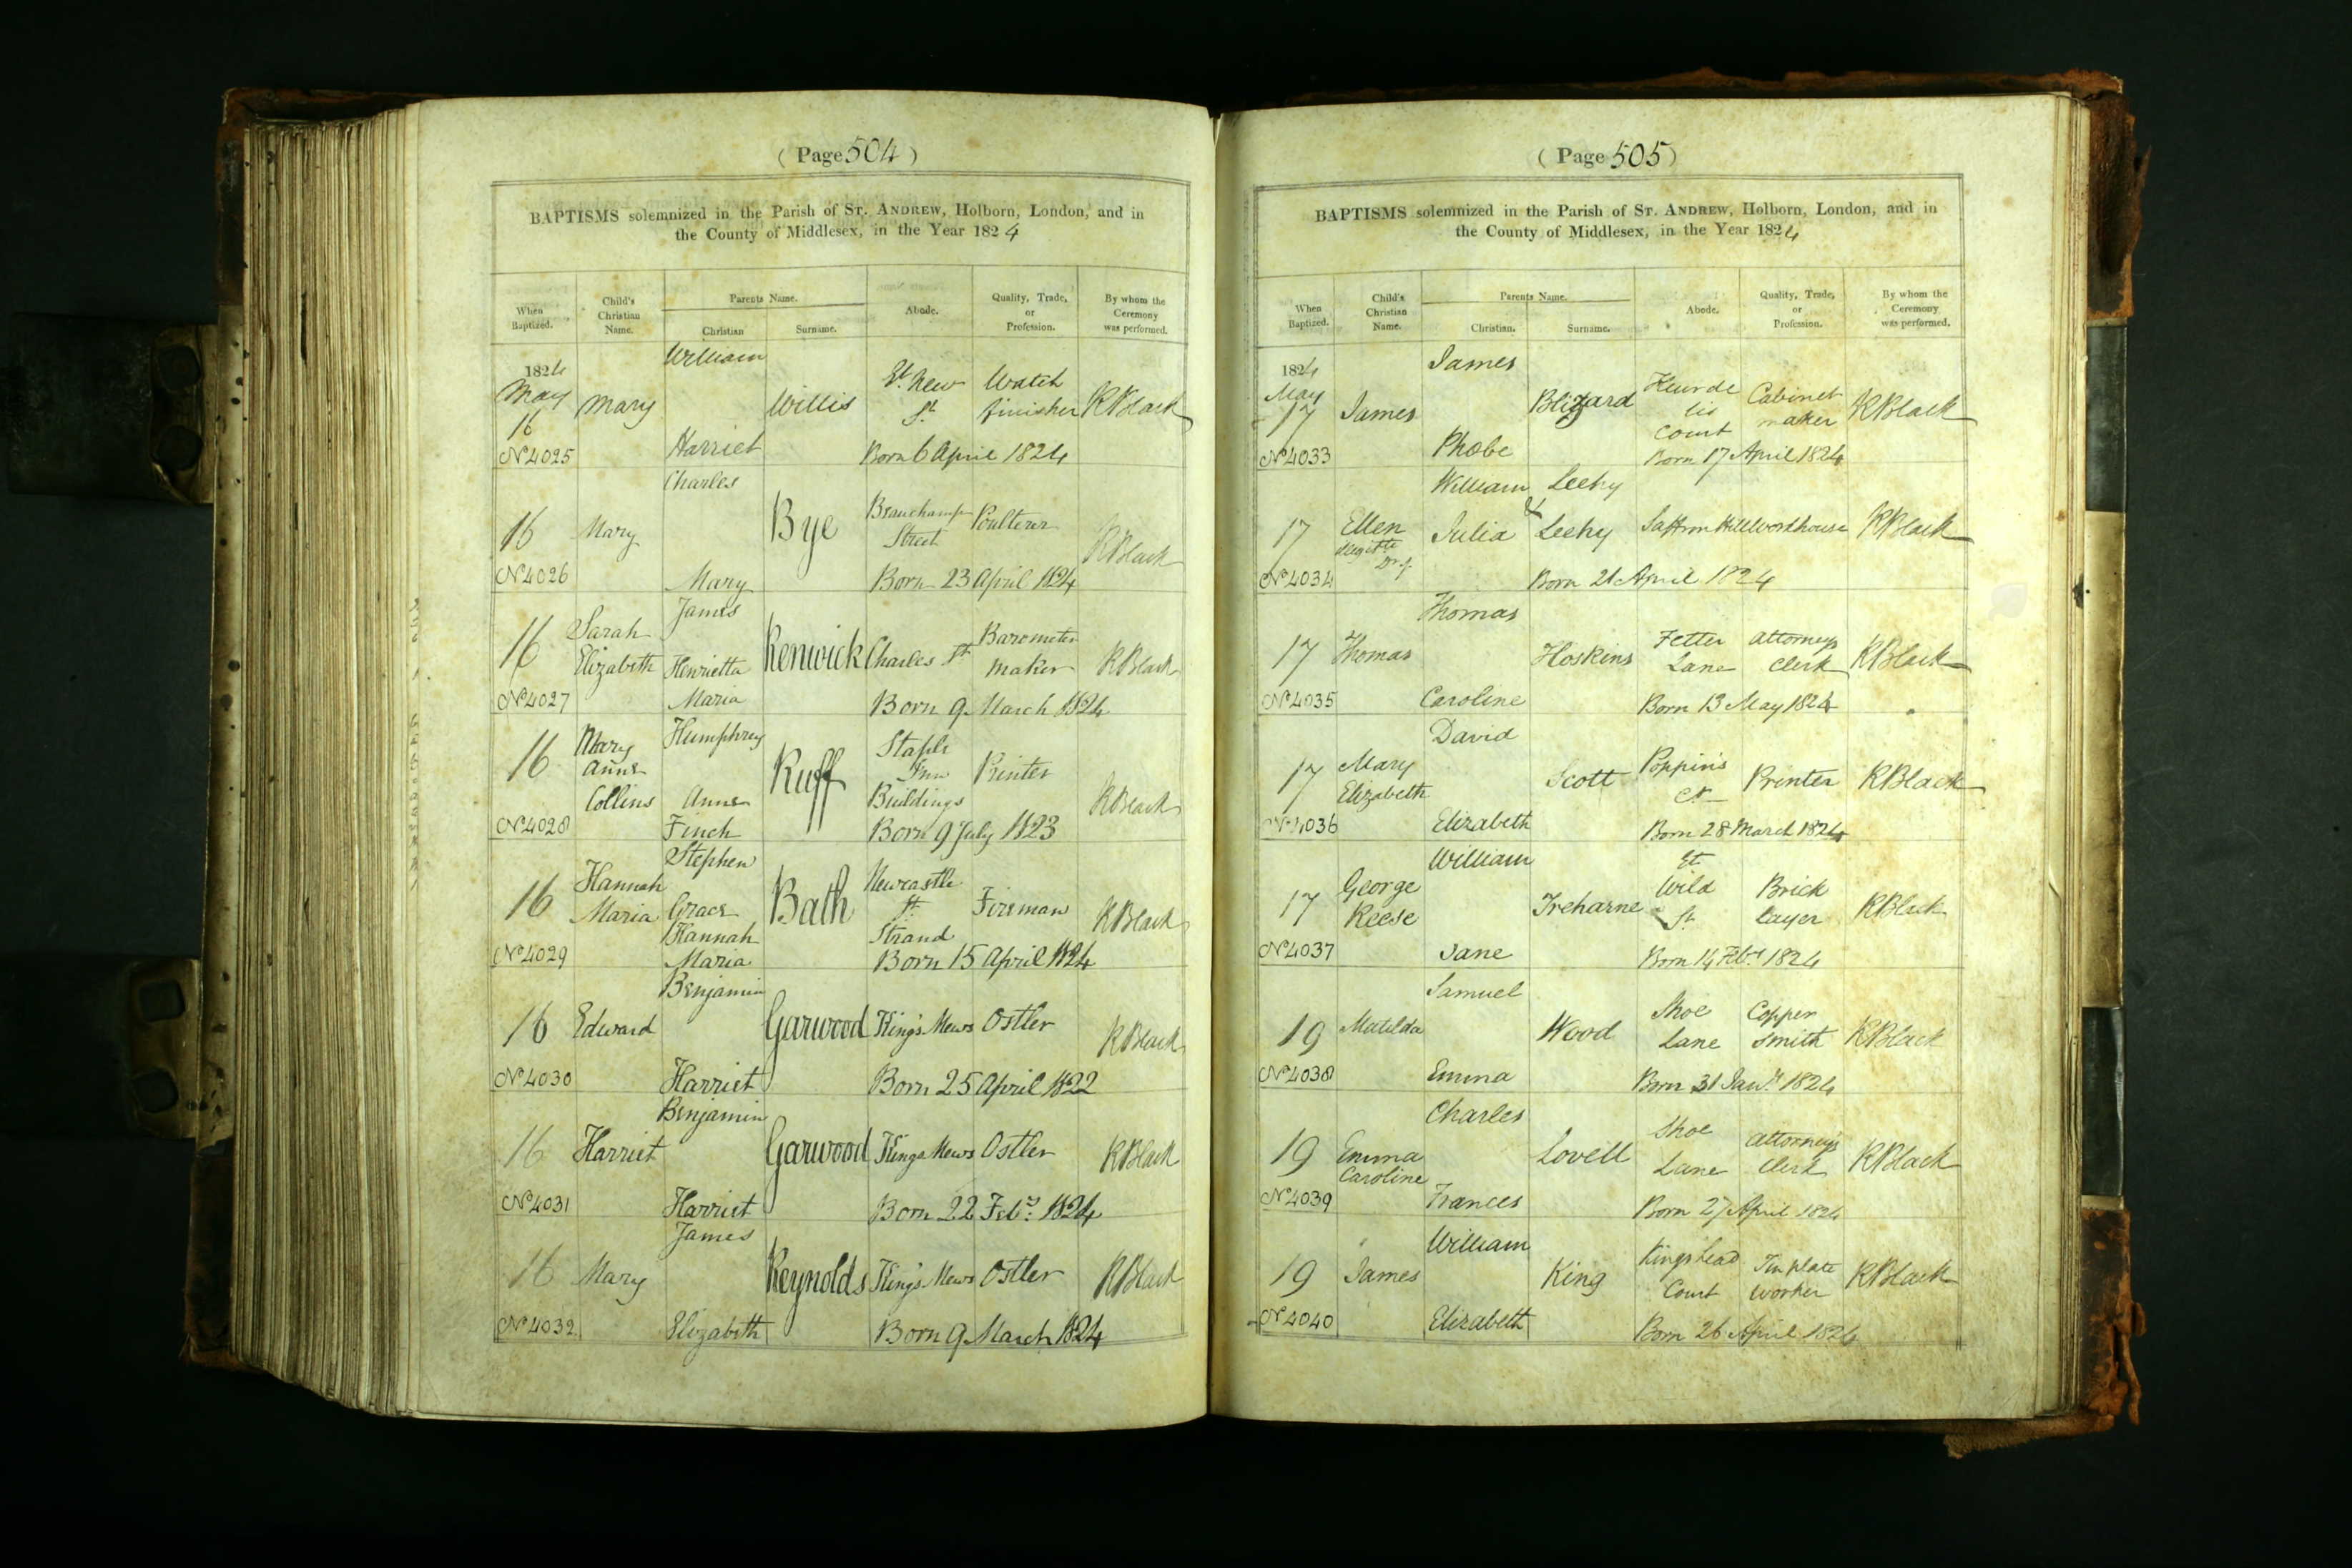 ( Page 504 )
BAPTISMS solemnized in the Parish of St. Andrew, Holborn, London, and in
the County of Middlesex, in the Year 1824
When Baptized.
Child's Christian Name.
Parents Name.
Christian
Surname.
Abode.
Quality, Trade, or Profession.
By whom the Ceremony was performed.
1824 May 16 Mary William Harriet Willis Gt. New St. Watch finisher RBlack
No 4025 Born 6 April 1824
16 Mary Charles Mary Bye Beauchamp Street Poulterer RBlack
No 4026 Born 23 April 1824
16 Sarah Elizabeth James Henrietta Maria Renwick Charles St Barometer Maker RBlack
No 4027 Born 9 March 1824
16 Mary Anne Collins Humphrey Anne Finch Ruff Staple Inn Buildings Printer RBlack
No 4028 Born 9 July 1823
16 Hannah Maria Stephen Grace Hannah Maria Bath Newcastle St. Strand Fireman RBlack
No 4029 Born 15 April 1824
16 Edward Benjamin Harriet Garwood King's Mews Ostler RBlack
No 4030 Born 25 April 1822
16 Harriet Benjamin Harriet Garwood Kings Mews Ostler RBlack
No 4031 Born 22 Feby. 1824
16 Mary James Elizabeth Reynolds King's Mews Ostler RBlack
No 4032 Born 9 March 1824
( Page 505 )
BAPTISMS solemnized in the Parish of St. Andrew, Holborn, London, and in
the County of Middlesex, in the Year 1824
When Baptized.
Child's Christian Name.
Parents Name.
Christian.
Surname.
Abode.
Quality, Trade, or Profession.
By whom the Ceremony was performed.
1824 May 17 James James Phobe Blizard Court Cabinet maker RBlack
No 4033 Born 17 April 1824
17 Ellen William Leehy & Julia Leehy Saffron Hill Workhouse RBlack
No 4034 Born 21 April 1824
17 Thomas Thomas Caroline Hoskins Fetter Lane Attorneys Clerk RBlack
No 4035 Born 13 May 1824
17 Mary Elizabeth David Elizabeth Scott Poppins Ct Printer RBlack
No 4036 Born 28 March 1824
17 George Reese William Jane Treharne Gt Wild St. Brick layer RBlack
No 4037 Born 14 Feby 1824
19 Matilda Samuel Emma Wood Shoe Lane Copper Smith RBlack
No 4038 Born 31 Jany. 1824
19 Emma Caroline Charles Frances Lovell Shoe Lane Attorneys Clerk RBlack
No 4039 Born 27 April 1824
19 James William Elizabeth King Kings head Court Tin plate worker RBlack
No 4040 Born 26 April 1824